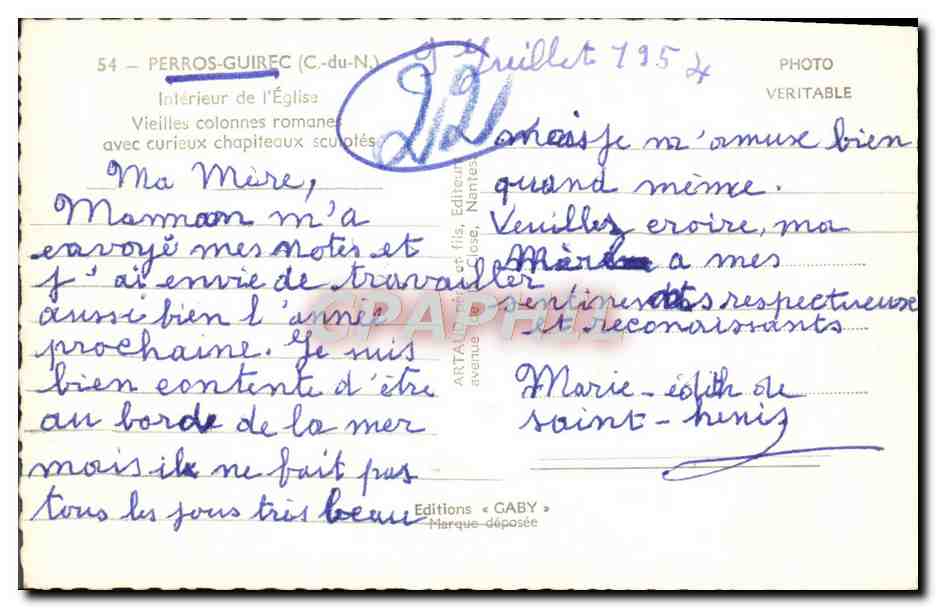 54 — PERROS-GUIREC (C.-du-N.)
Intérieur de l'Église
Vieilles colonnes romanes
avec curieux chapiteaux sculptés
22
9 Juillet 1954
PHOTO
VERITABLE
Ma Mère,
Maman m'a
envoyé mes notes et
j'ai envie de travailler
aussi bien l'année
prochaine. Je suis
bien contente d'être
au bord de la mer
mais il ne fait pas
tous les jours très beau
mais je m'amuse bien
quand même.
Veuillez croire, ma
Mère a mes
sentiments respectueuse
et reconaissants
Marie-édith de
saint-
ARTAUD père et fils, Editeurs
avenue de Close, Nantes
Editions « GABY »
Marque déposée
CPAPHIL